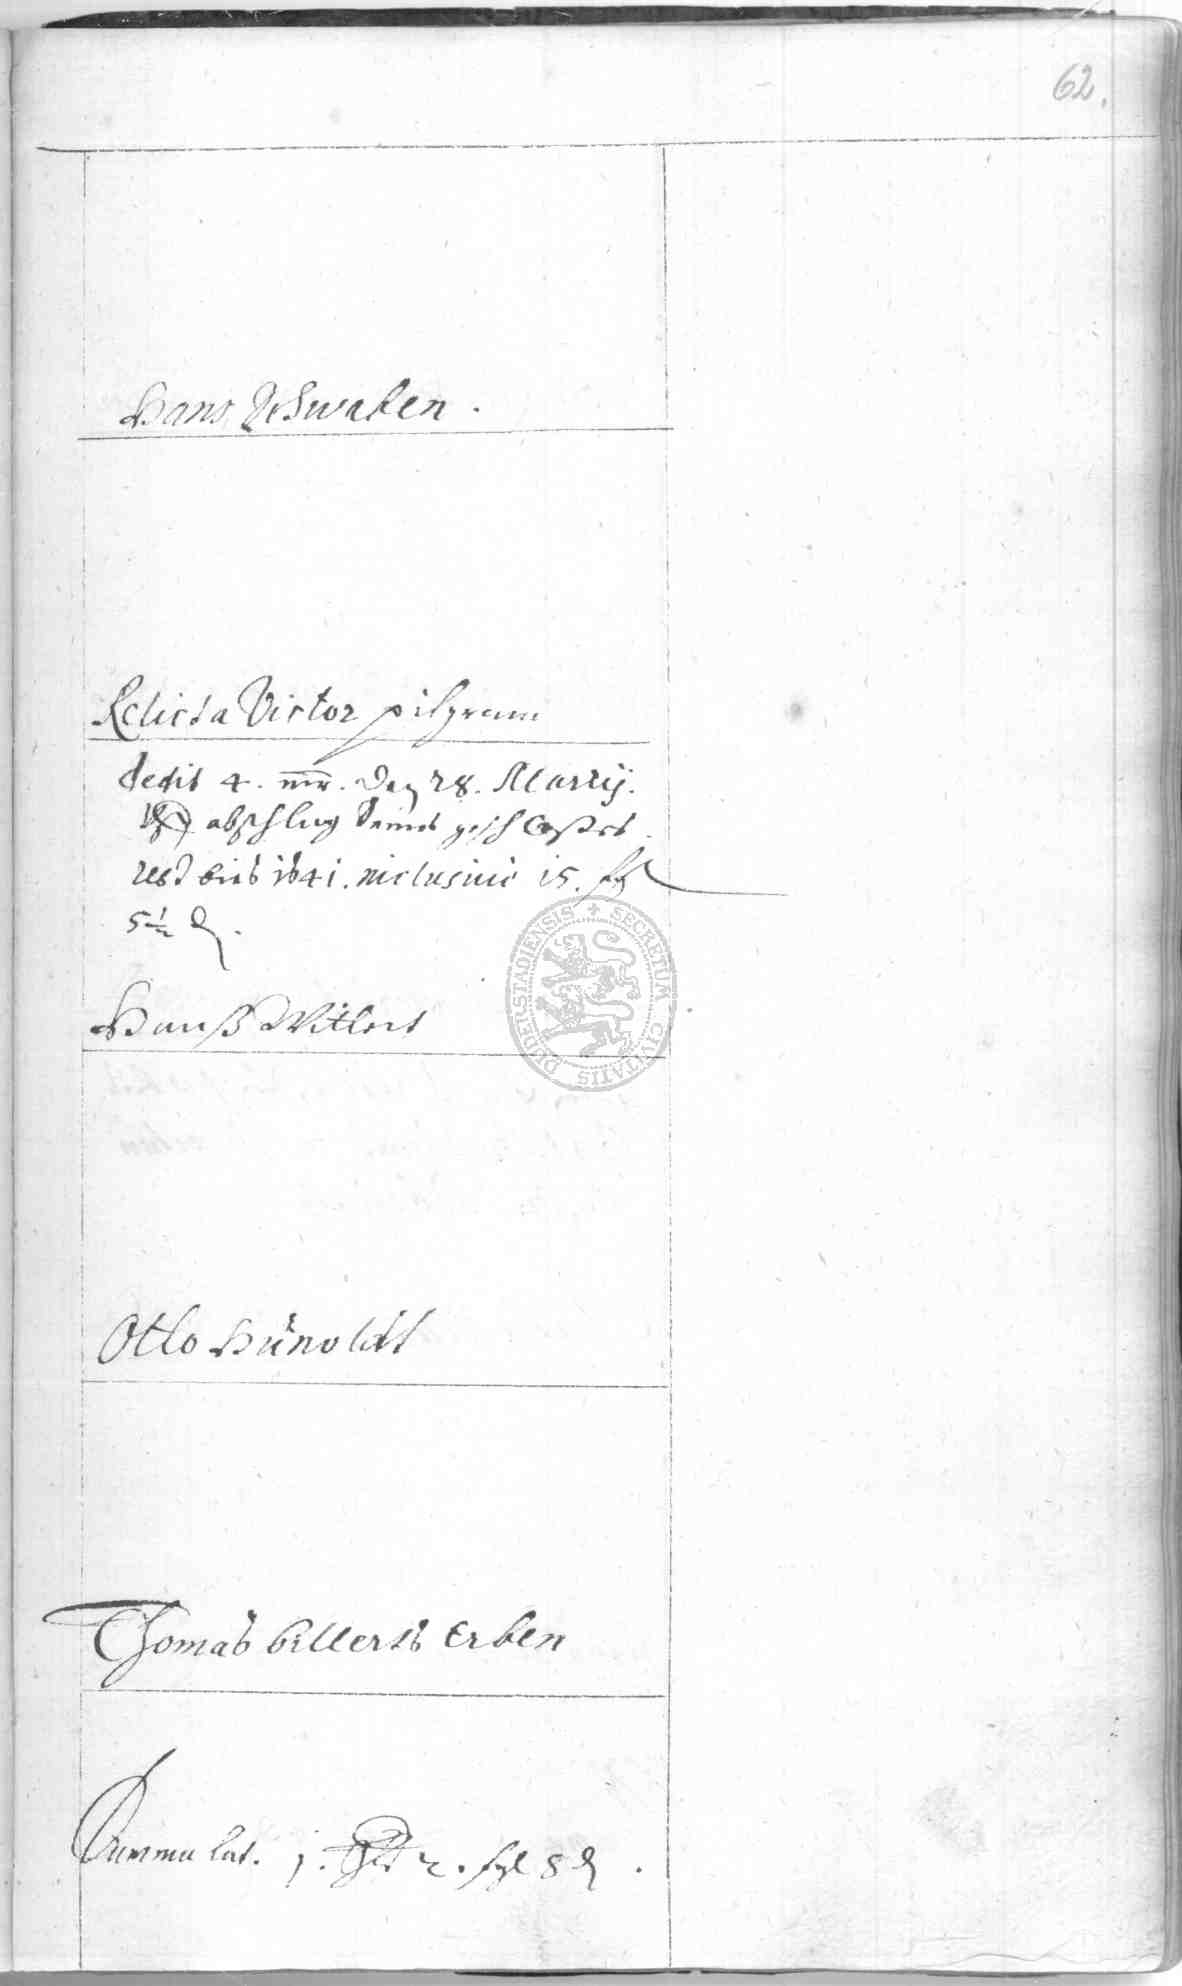 62.
Hans Schwaben.
Relicta Victor pilgram
dedit 4. mr. den 28. Martij.
abschlag
rest bies 1641. inclusive 15. ßl
5 1/2 ₰.
Hanß Witlers
SECRETUM CIVITATIS DUDERSTADIENSIS
Otto Hunoldt
Thomas billerts Erben
Summa lat. j. thlr 2. ßl 8 ₰.